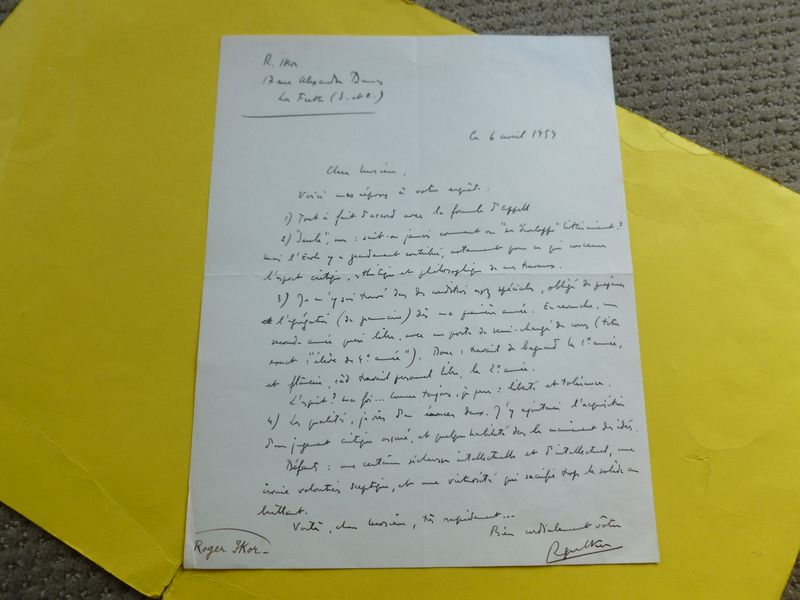 R. Ikor
17 rue Alexandre Dumas
La Frette (S. et O.)
le 6 avril 1959
Cher Monsieur,
Voici mes réponses à votre enquête :
1) Tout à fait d'accord avec la formule d'appel
2) "Seule", non : sait-on jamais comment on "se développe" littérairement ?
mais l'Ecole y a grandement contribué, notamment pour ce qui concerne
l'aspect critique, esthétique et philosophique de mes travaux.
3) Je m'y suis trouvé dans des conditions assez spéciales, obligé de préparer
l'agrégation (de grammaire) dès ma première année. En revanche, ma
seconde année quasi libre, avec un poste de semi-chargé de cours (titre
exact : "élève de 4e année"). Donc : travail de bagnard la 1e année,
et flânerie, càd travail personnel libre, la 2e année.
L'esprit ? ma foi... comme toujours, je pense : liberté et tolérance.
4) Les qualités, je viens d'en énoncer deux. J'y ajouterais l'acquisition
d'un jugement critique assuré, et quelque habileté dans le maniement des idées.
Défauts : une certaine sécheresse intellectuelle et d'intellectuel, une
ironie volontiers sceptique, et une virtuosité qui sacrifie trop le solide au
brillant.
Voilà, cher Monsieur, très rapidement...
Bien cordialement vôtre
Roger Ikor
Roger Ikor